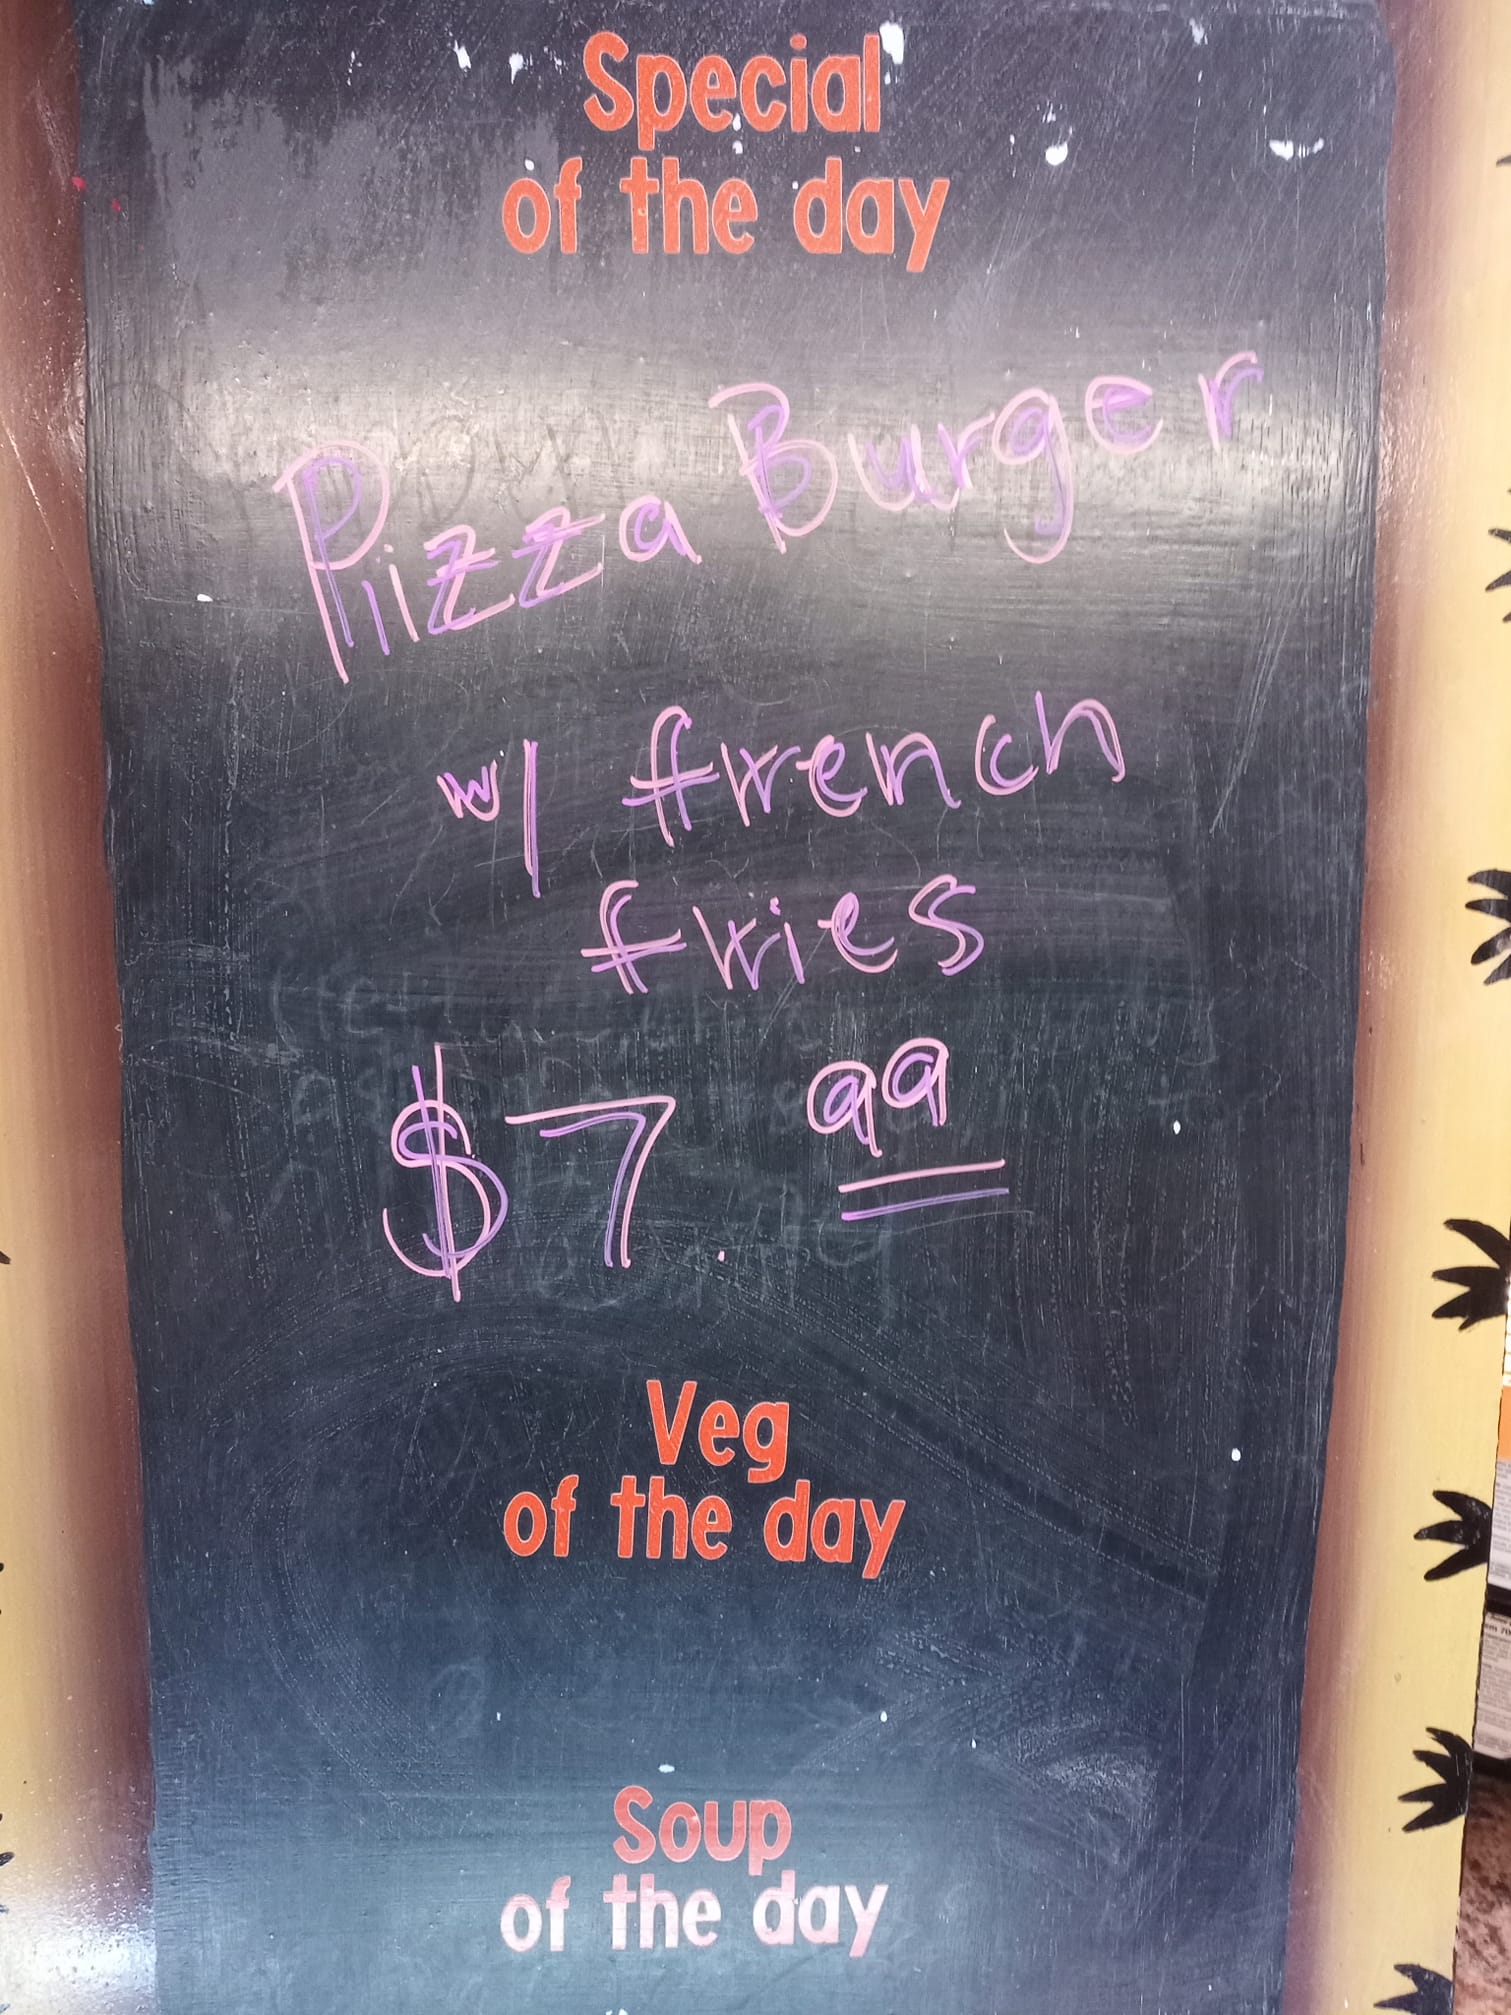 Special
of the day
Pizza Burger
w/ french
fries
$7.99
Veg
of the day
Soup
of the day